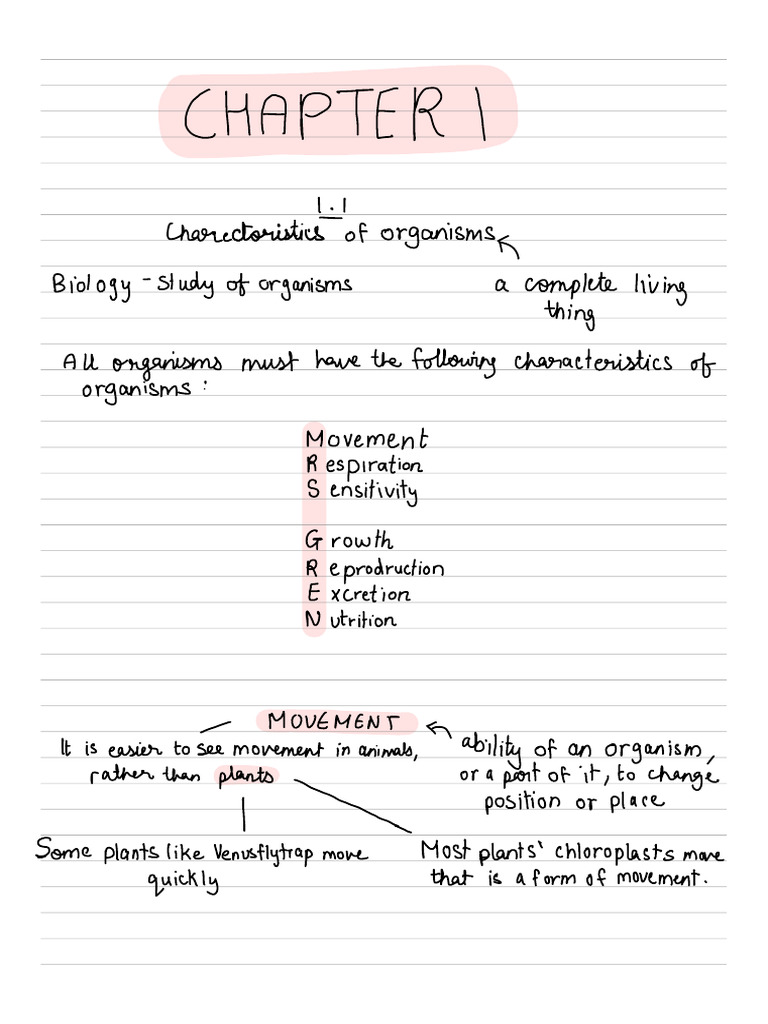 CHAPTER 1
1.1
Charectoristics of organisms
Biology - study of organisms
a complete living
thing
All organisms must have the following characteristics of
organisms :
Movement
Respiration
Sensitivity
Growth
Reprodruction
Excretion
Nutrition
MOVEMENT
It is easier to see movement in animals,
rather than plants
ability of an organism,
or a part of it, to change
position or place
Some plants like Venusflytrap move
quickly
Most plants' chloroplasts move
that is a form of movement.